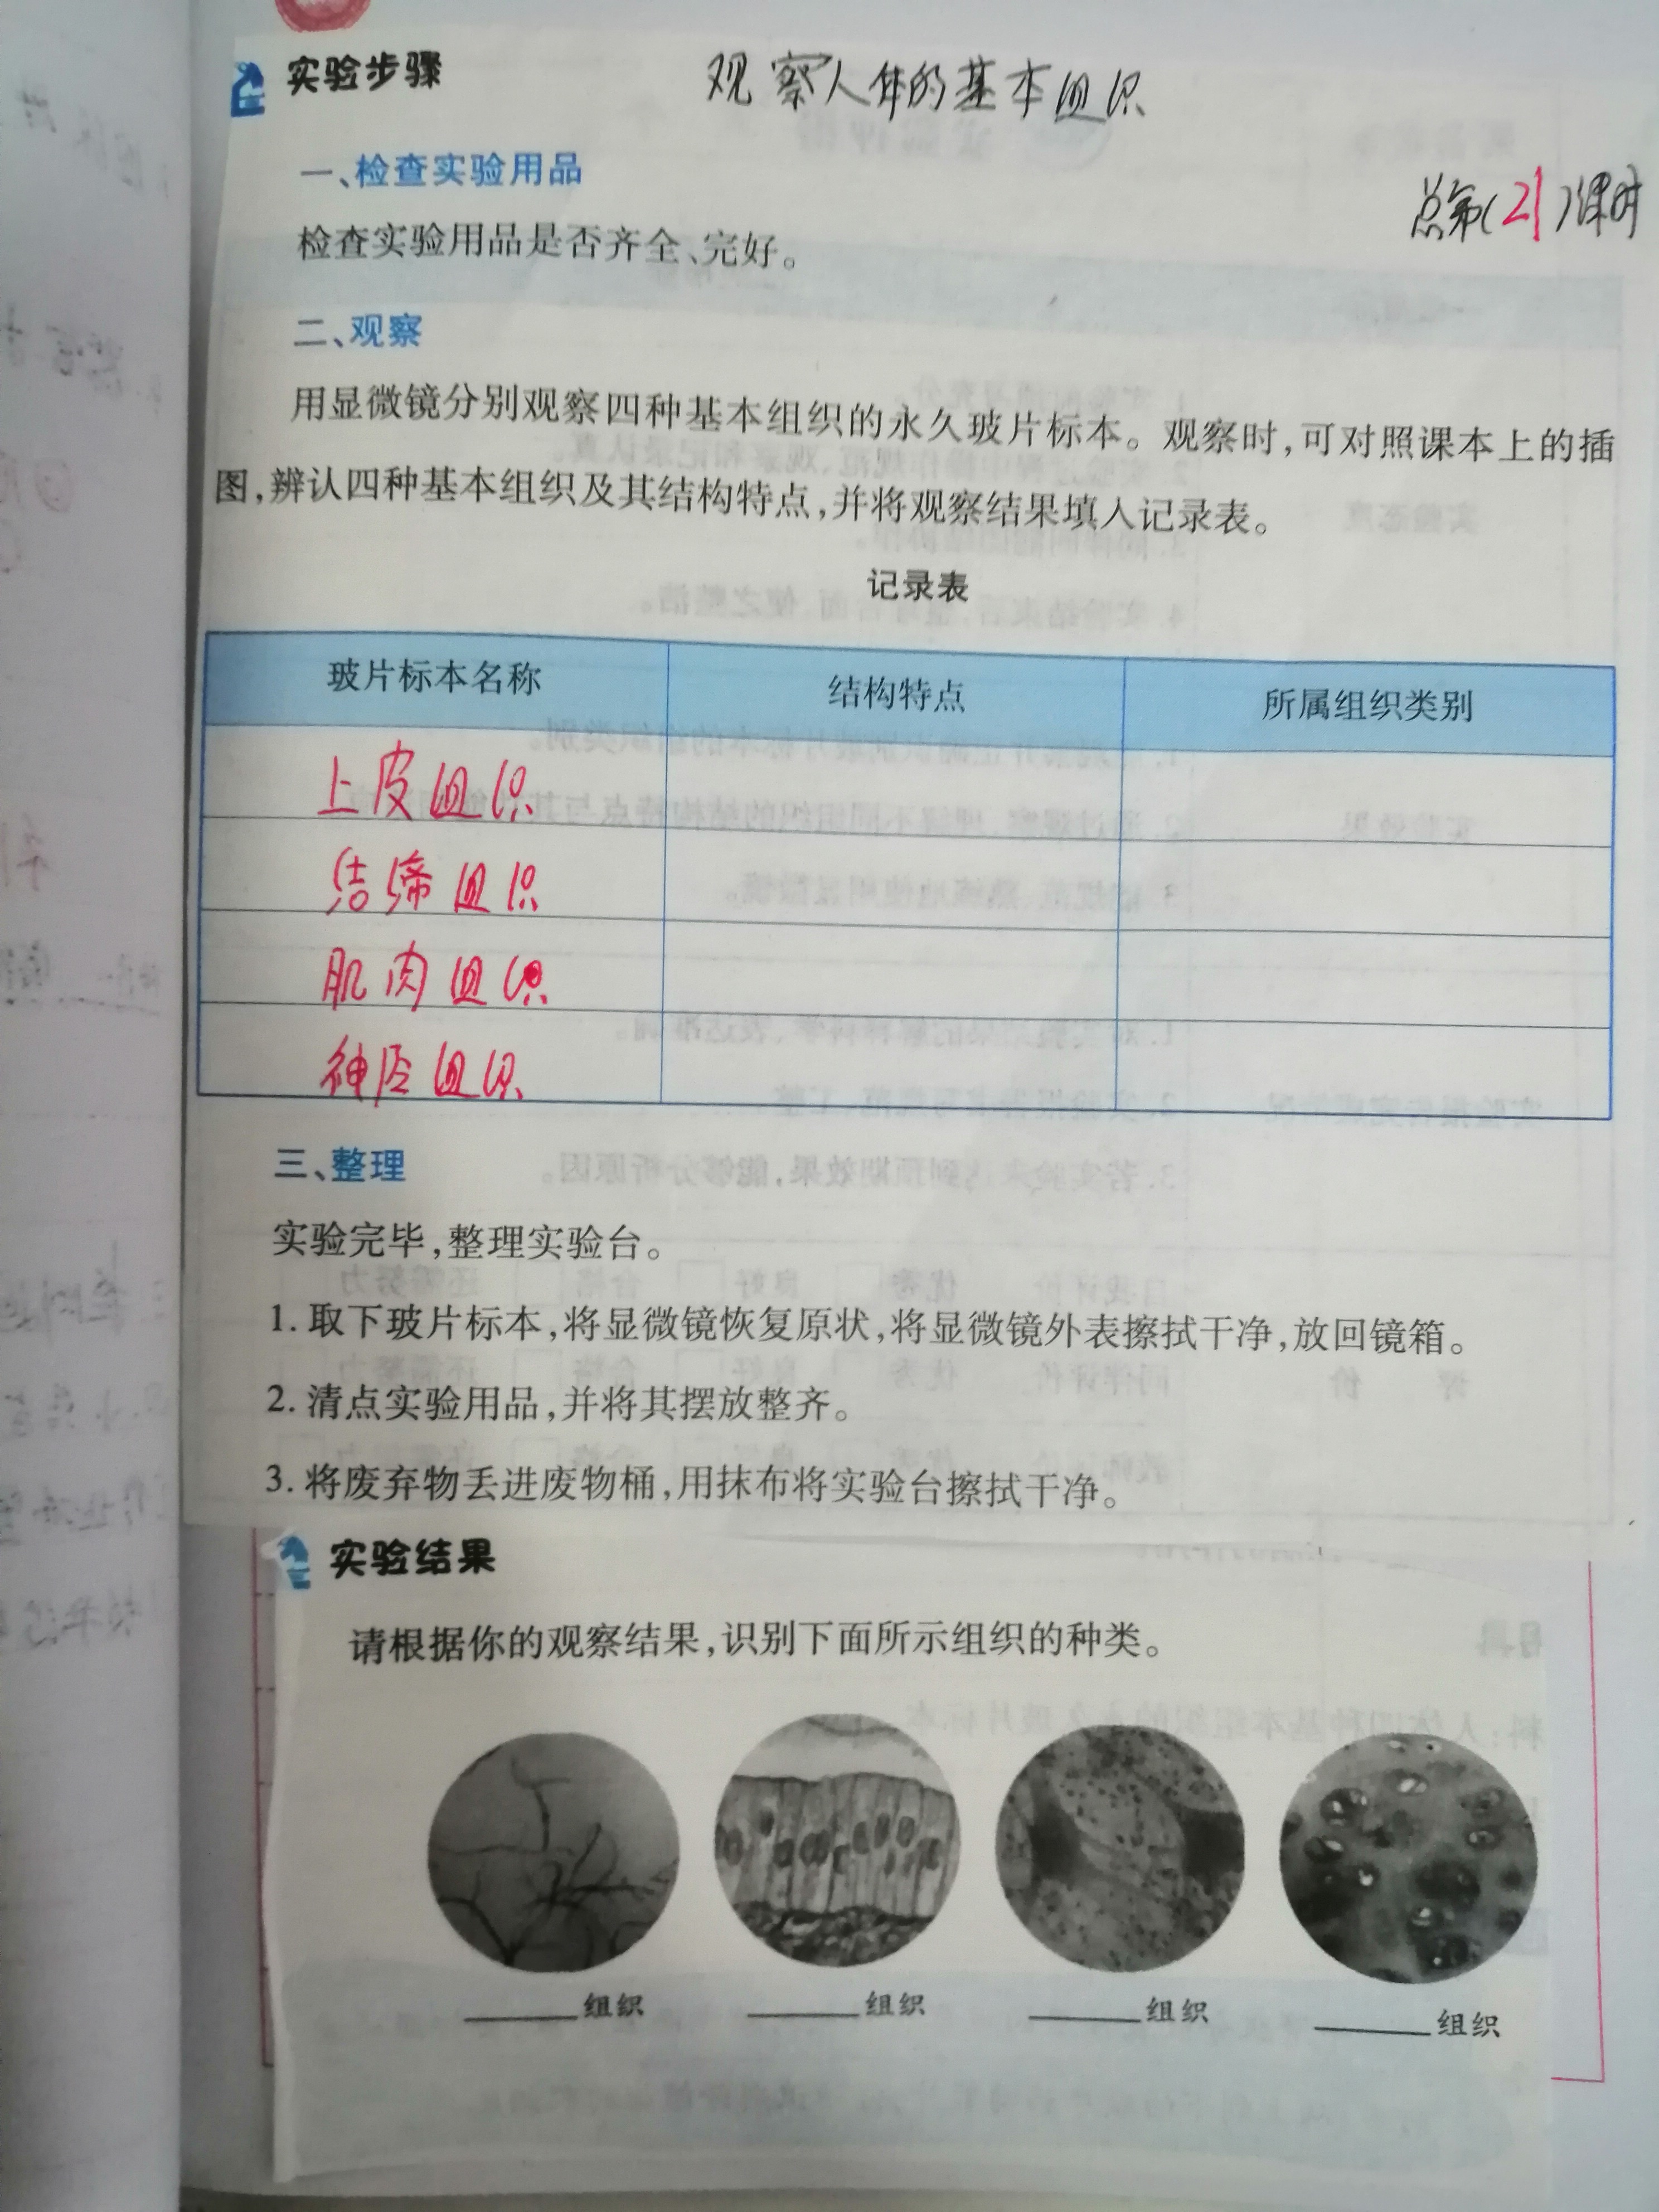 实验步骤
观察人体的基本组织
一、检查实验用品
总第(21)课时
检查实验用品是否齐全、完好。
二、观察
用显微镜分别观察四种基本组织的永久玻片标本。观察时,可对照课本上的插
图,辨认四种基本组织及其结构特点,并将观察结果填入记录表。
记录表
玻片标本名称 结构特点 所属组织类别
上皮组织
结缔组织
肌肉组织
神经组织
三、整理
实验完毕,整理实验台。
1. 取下玻片标本,将显微镜恢复原状,将显微镜外表擦拭干净,放回镜箱。
2. 清点实验用品,并将其摆放整齐。
3. 将废弃物丢进废物桶,用抹布将实验台擦拭干净。
实验结果
请根据你的观察结果,识别下面所示组织的种类。
______组织 ______组织 ______组织 ______组织